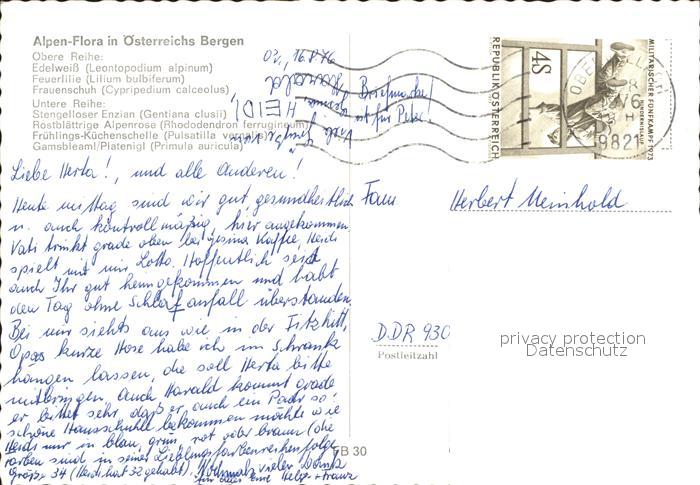 Alpen-Flora in Österreichs Bergen
Obere Reihe:
Edelweiß (Leontopodium alpinum)
Feuerlilie (Lilium bulbiferum)
Frauenschuh (Cypripedium calceolus)
Untere Reihe:
Stengelloser Enzian (Gentiana clusii)
Rostblättrige Alpenrose (Rhododendron ferrugineum)
Frühlings-Küchenschelle (Pulsatilla vernalis)
Gamsbleaml/Platenigl (Primula auricula)
HEIDI,
Briefmarke
ist für Peter!
4S
REPUBLIK ÖSTERREICH
MILITÄRISCHER FÜNFKAMPF 1973
HINDERNISLAUF
9821
Liebe Herta!, und alle Anderen!
Heute mittag sind wir gut, gesundheitlich
u. auch kontrollmäßig, hier angekommen.
Vati trinkt grade oben bei Gesina Kaffee, Heidi
spielt mit mir Lotto. Hoffentlich seid
auch Ihr gut heimgekommen und habt
den Tag ohne Schlafanfall überstanden.
Bei mir siehts aus wie in der
Opas kurze Hose habe ich im Schrank
hängen lassen, die soll Herta bitte
mitbringen. Auch Harald kommt grade
er bittet sehr, daß er auch ein Paar so
schöne Hausschuhe bekommen möchte wie
Heidi nur in blau, grün, rot oder braun (die
Farben sind in seiner Lieblingsfarbenreihenfolge
Größe 34 (Heidi hat 32 gehabt). Nochmals vielen Dank
für alles Eure Helga + Franz
Fam Herbert Meinhold
DDR 930
Postleitzahl
privacy protection
Datenschutz
FB 30